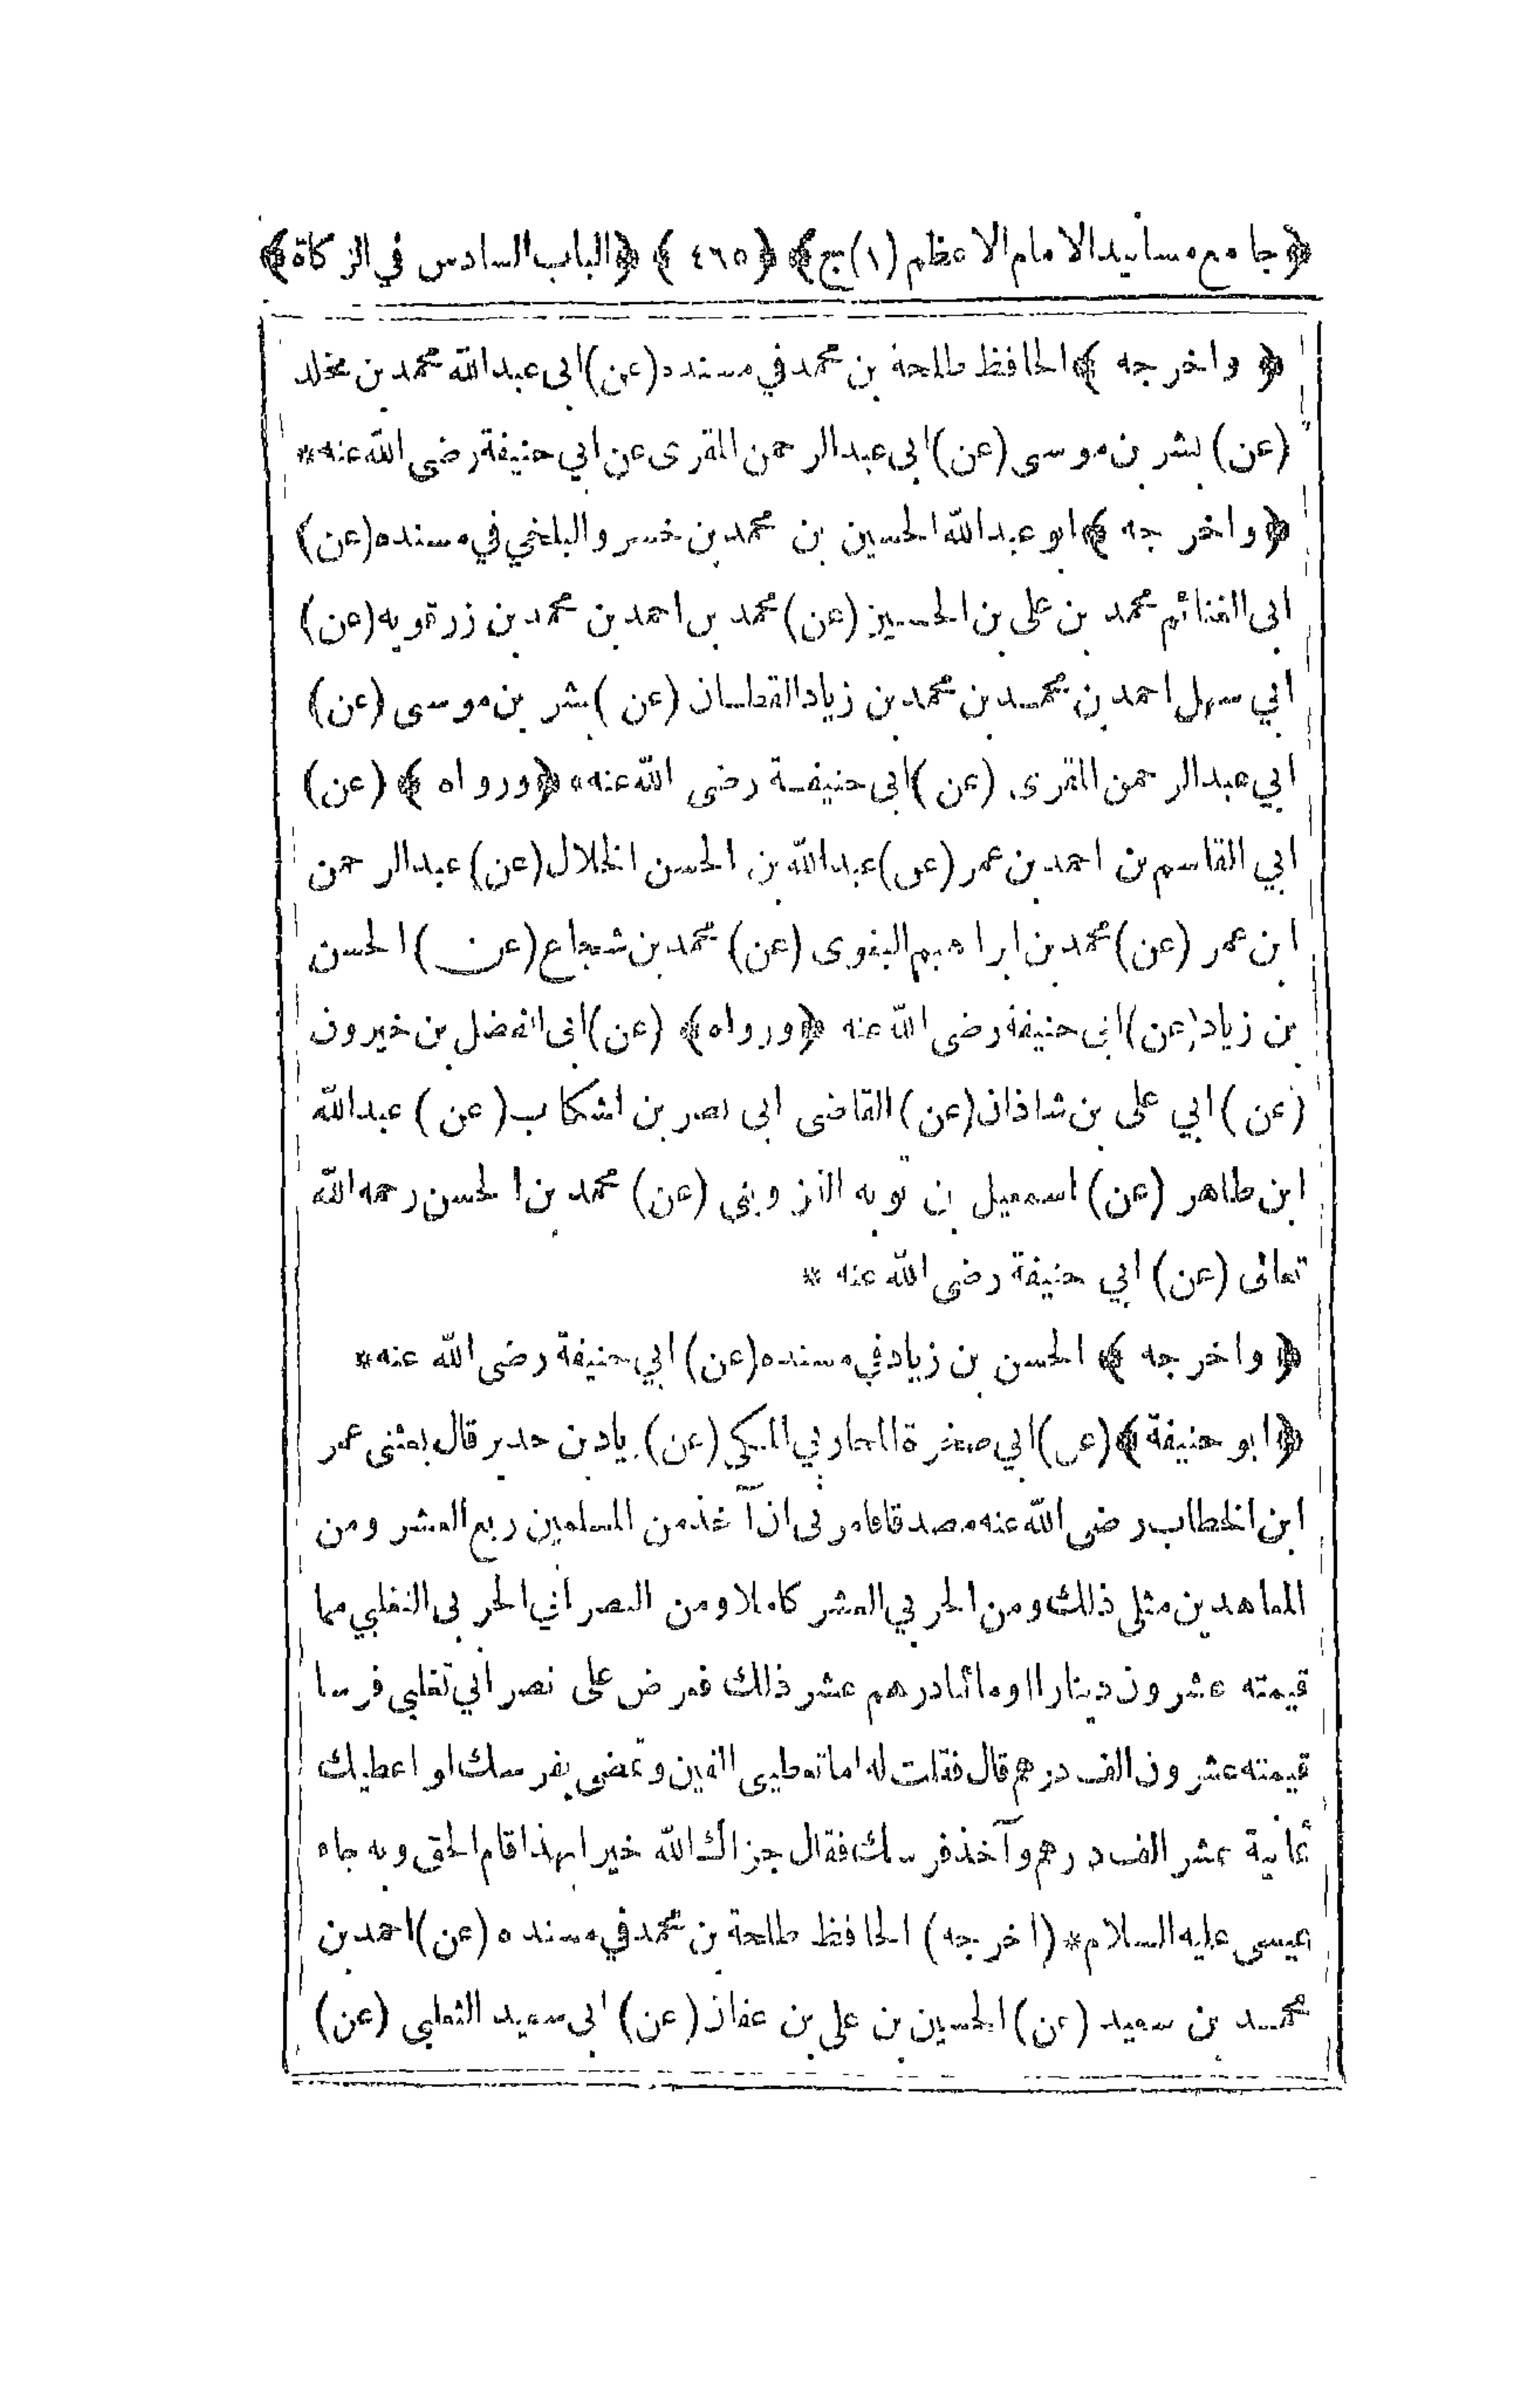 ﴿جامع مسانيد الامام الاعظم (١) ج﴾ ﴿٤٦٥﴾ ﴿الباب السادس في الزكاة﴾
﴿واخرجه﴾ الحافظ طلحة بن محمد في مسنده (عن) ابى عبدالله محمد بن مخلد
(عن) بشر بن موسى (عن) ابى عبدالرحمن المقرى عن ابي حنيفة رضى الله عنه*
﴿واخرجه﴾ ابو عبدالله الحسين بن محمد بن خسرو البلخي في مسنده (عن)
ابى الغنائم محمد بن على بن الحسين (عن) محمد بن احمد بن محمد بن زرقويه (عن)
ابي سهل احمد بن محمد بن محمد بن زياد القطان (عن) بشر بن موسى (عن)
ابي عبدالرحمن المقرى (عن) ابى حنيفة رضى الله عنه* ﴿ورواه﴾ (عن)
ابي القاسم بن احمد بن عمر (عن) عبدالله بن الحسن الخلال (عن) عبدالرحمن
ابن عمر (عن) محمد بن ابراهيم البغوى (عن) محمد بن شجاع (عن) الحسن
بن زياد (عن) ابى حنيفة رضى الله عنه ﴿ورواه﴾ (عن) ابى الفضل بن خيرون
(عن) ابي على بن شاذان (عن) القاضى ابى نصر بن اشكاب (عن) عبدالله
ابن طاهر (عن) اسمعيل بن توبه القزوينى (عن) محمد بن الحسن رحمه الله
تعالى (عن) ابي حنيفة رضى الله عنه *
﴿واخرجه﴾ الحسن بن زياد في مسنده (عن) ابي حنيفة رضى الله عنه*
﴿ابو حنيفة﴾ (عن) ابي صخرة المحاربي المكى (عن) زياد بن حدير قال بعثنى عمر
ابن الخطاب رضى الله عنه مصدقا فامرنى ان آخذ من المسلمين ربع العشر ومن
المعاهدين مثلى ذلك ومن الحربي العشر كاملا ومن النصراني الحربى التغلبي مما
قيمته عشرون دينارا او مائتا درهم عشر ذلك فمرض على نصراني تغلبي فرسا
قيمته عشرون الف درهم قال فقلت له اما تعطينى الفين وتمضى بفرسك او اعطيك
ثمانية عشر الف درهم وآخذ فرسك فقال جزاك الله خيرا بهذا قام الحق وبه جاء
عيسى عليه السلام* (اخرجه) الحافظ طلحة بن محمد في مسنده (عن) احمد بن
محمد بن سعيد (عن) الحسين بن على بن عفان (عن) ابى سعيد الثعلبي (عن)